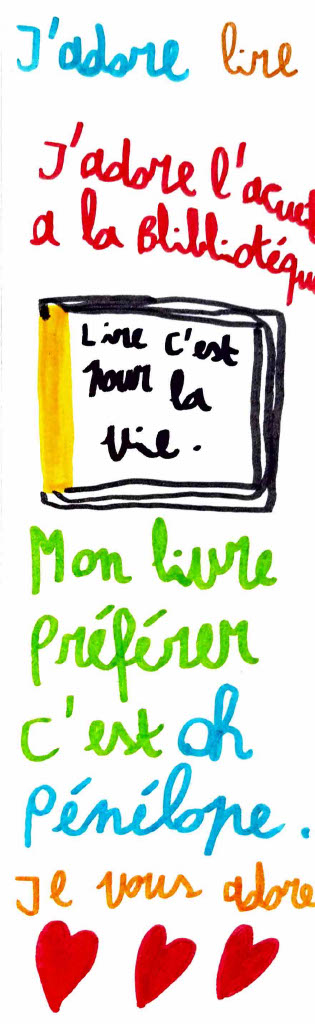 J'adore lire
J'adore l'acueil
a la Blibliotéque
Lire c'est
pour la
vie.
Mon livre
préférer
c'est oh
Pénélope.
Je vous adore